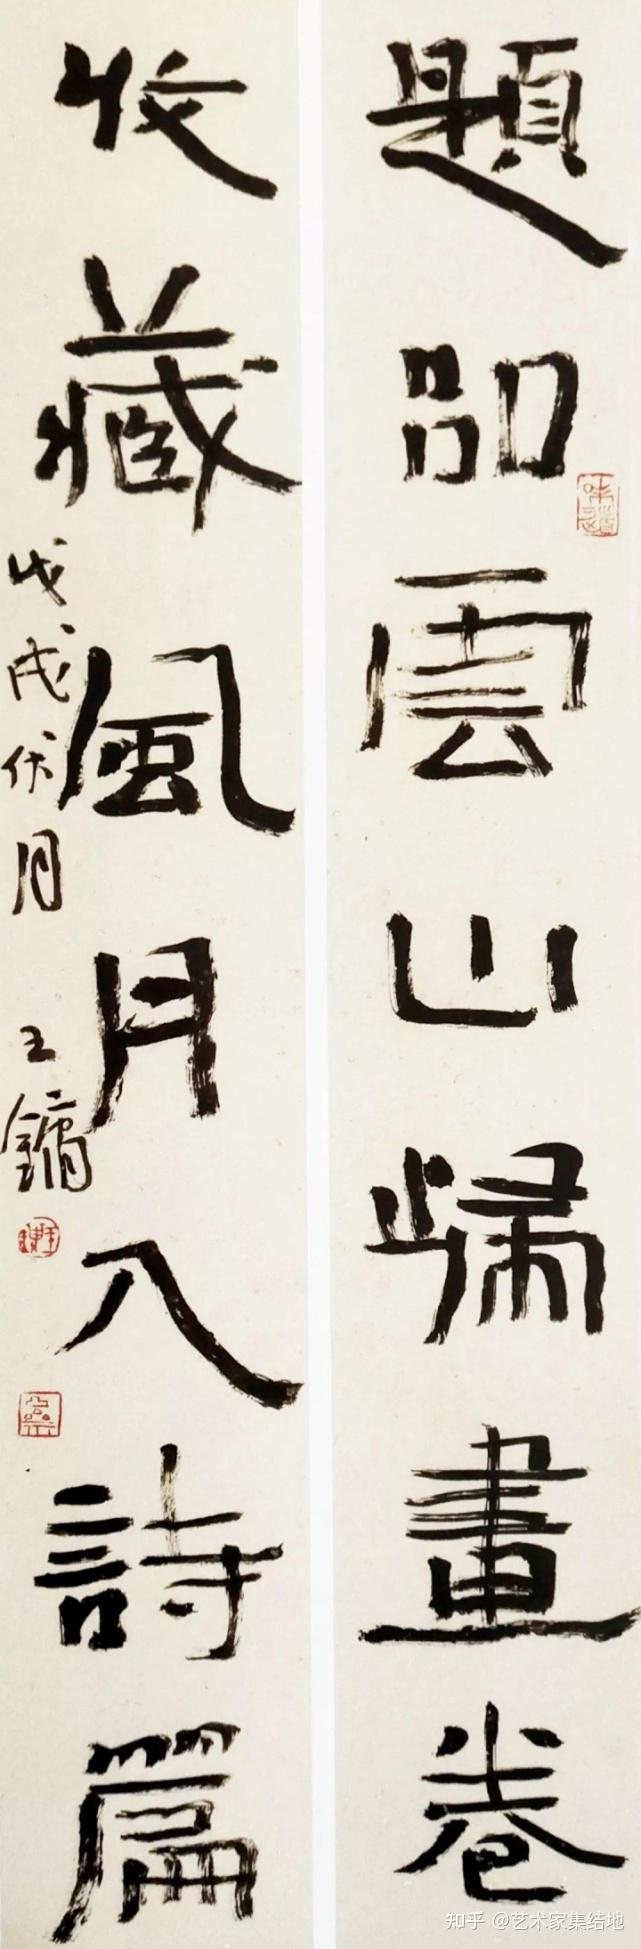 題品雲山歸畫卷
收藏風月入詩篇
戊戌伏月
王鏞
味道
知乎 @艺术家集结地